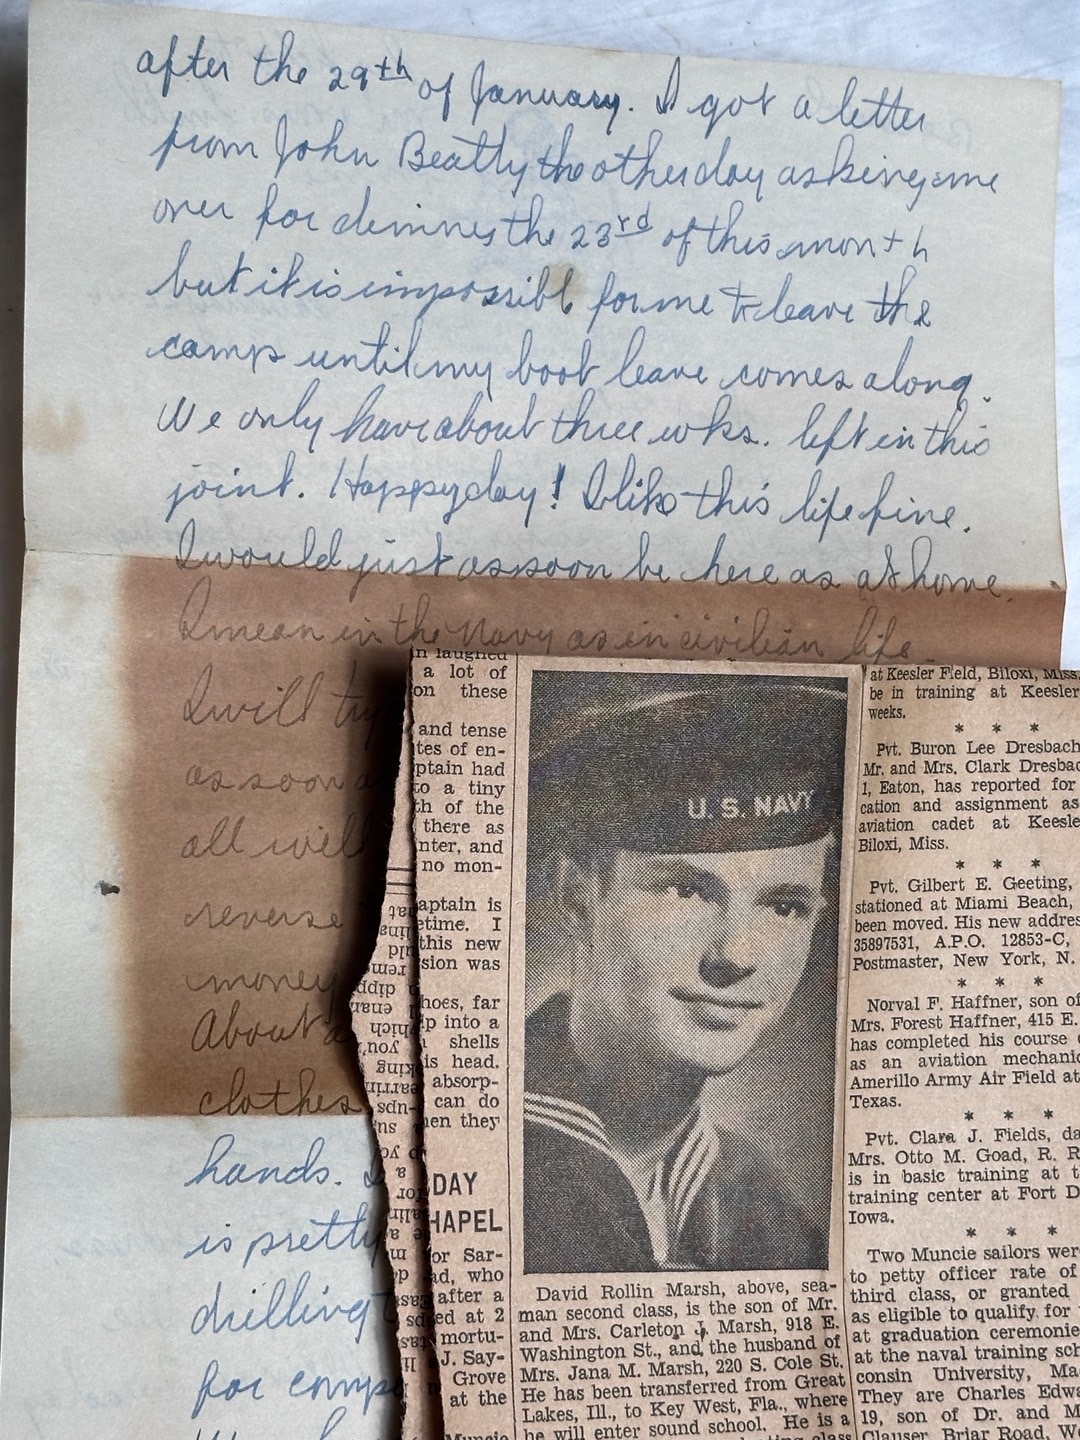 after the 29th of January. I got a letter
from John Beatty the other day asking me
over for dinner the 23rd of this month
but it is impossibl for me to leave the
camp until my boot leave comes along.
We only have about three wks. left in this
joint. Happy day! I like this life fine.
I would just as soon be here as at home.
I mean in the Navy as in civilian life.
I will try
as soon as
all will
reverse
money
About a
clothes
hands. I
is pretty
drilling
for comp
n laughed
a lot of
on these
and tense
tes of en-
ptain had
to a tiny
th of the
there as
nter, and
no mon-
aptain is
etime. I
this new
sion was
hoes, far
p into a
shells
is head.
absorp-
can do
en they
DAY
HAPEL
or Sar-
d, who
after a
ed at 2
mortu-
J. Say-
Grove
at the
Muncie
U. S. NAVY
David Rollin Marsh, above, sea-
man second class, is the son of Mr.
and Mrs. Carleton J. Marsh, 918 E.
Washington St., and the husband of
Mrs. Jana M. Marsh, 220 S. Cole St.
He has been transferred from Great
Lakes, Ill., to Key West, Fla., where
he will enter sound school. He is a
class
at Keesler Field, Biloxi, Miss.
be in training at Keesler
weeks.
* * *
Pvt. Buron Lee Dresbach
Mr. and Mrs. Clark Dresbac
1, Eaton, has reported for
cation and assignment as
aviation cadet at Keesle
Biloxi, Miss.
* * *
Pvt. Gilbert E. Geeting,
stationed at Miami Beach,
been moved. His new addres
35897531, A.P.O. 12853-C,
Postmaster, New York, N.
* * *
Norval F. Haffner, son of
Mrs. Forest Haffner, 415 E.
has completed his course
as an aviation mechanic
Amerillo Army Air Field at
Texas.
* * *
Pvt. Clara J. Fields, da
Mrs. Otto M. Goad, R. R
is in basic training at t
training center at Fort D
Iowa.
* * *
Two Muncie sailors wer
to petty officer rate of
third class, or granted
as eligible to qualify for
at graduation ceremonie
at the naval training sch
consin University, Ma
They are Charles Edwa
19, son of Dr. and M
Clauser, Briar Road, W